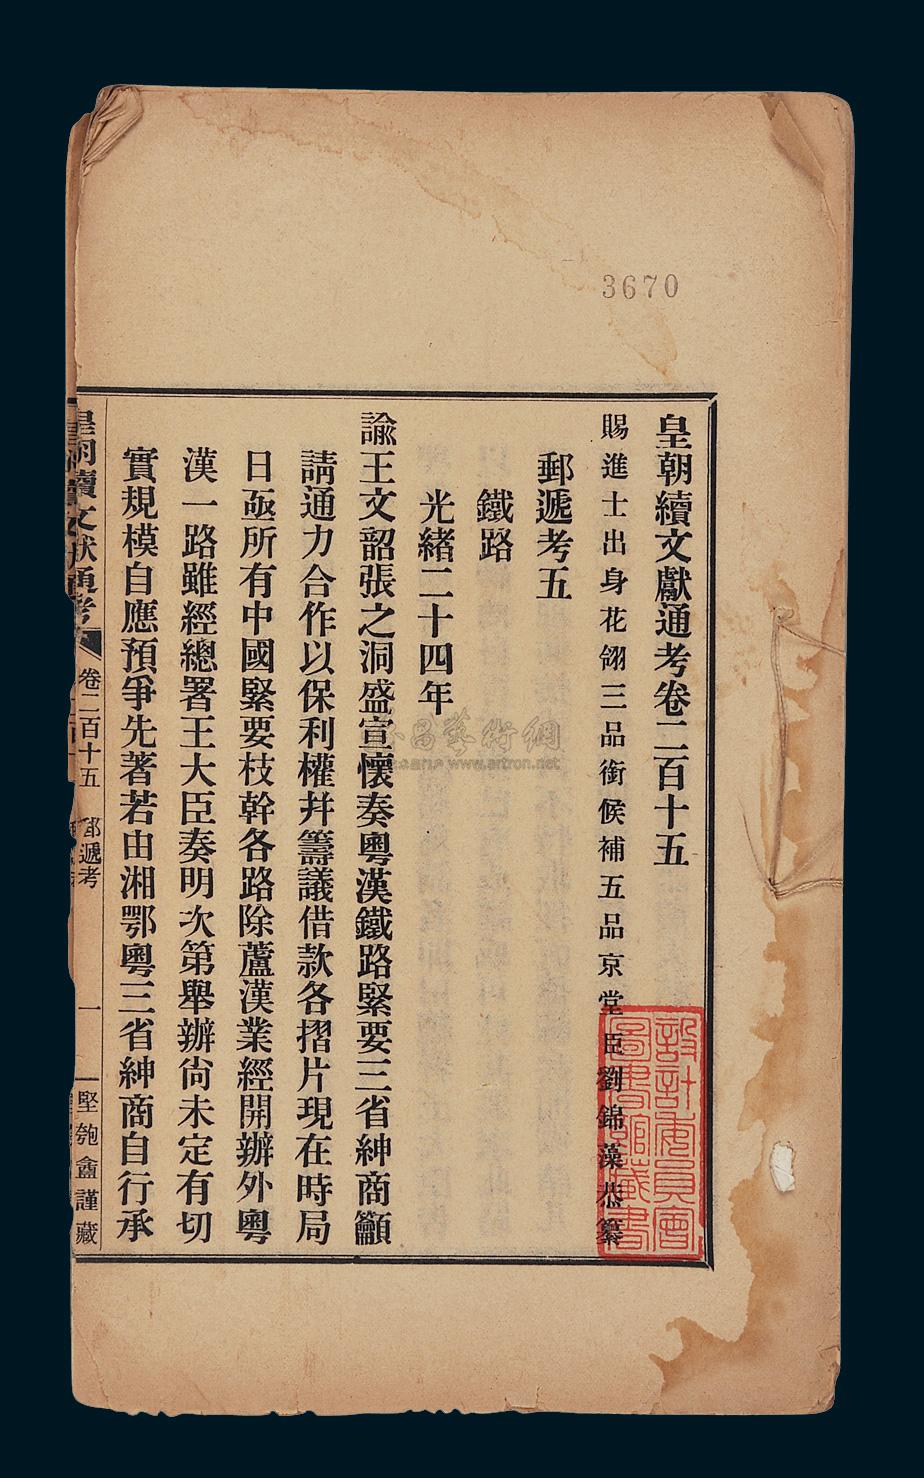 3670
皇朝續文獻通考卷二百十五
賜進士出身花翎三品銜候補五品京堂臣劉錦藻恭纂
郵遞考五
鐵路
光緒二十四年
諭王文韶張之洞盛宣懷奏粵漢鐵路緊要三省紳商籲
請通力合作以保利權幷籌議借款各摺片現在時局
日亟所有中國緊要枝幹各路除蘆漢業經開辦外粵
漢一路雖經總署王大臣奏明次第舉辦尙未定有切
實規模自應預爭先著若由湘鄂粵三省紳商自行承
皇朝續文獻通考 卷二百十五 郵遞考 一 堅匏盦謹藏
設計委員會
圖書館藏書
www.artron.net